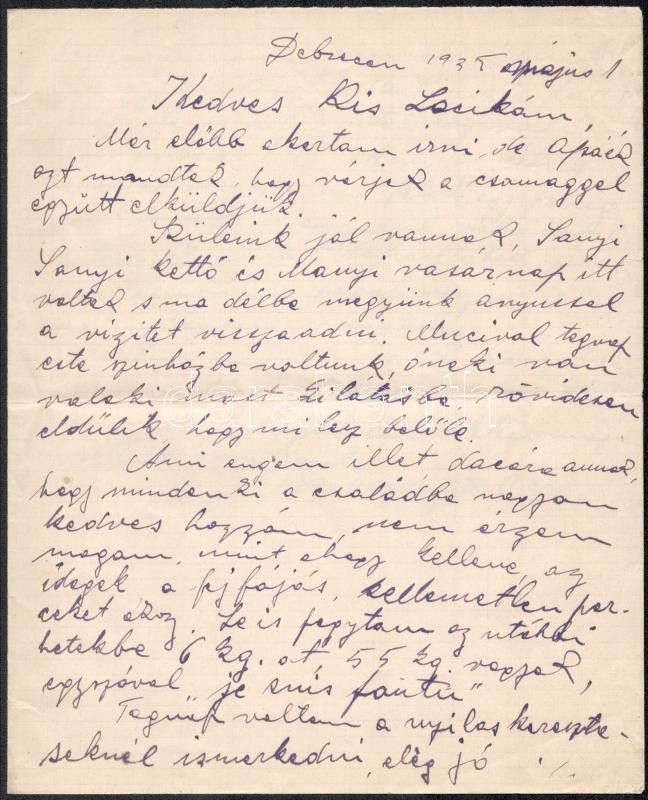 Debrecen 1935 május 1
Kedves Kis Locikám,
Már előbb akartam irni, de Apáék
azt mondták, hogy várjak a csomaggal
együtt elküldjük.
Szüleink jól vannak, Sanyi
Sanyi kettő és Manyi vasárnap itt
voltak s ma délbe megyünk anyussal
a vizitet visszaadni. Mucival tegnap
este szinházba voltunk, őneki van
valaki most kilátásba, rövidesen
eldűlik, hogy mi lesz belőle.
Ami engem illet dacára annak,
hogy mindenki a családba nagyon
kedves hozzám, nem érzem
magam, mint ahogy kellene, az
idegek a fejfájás, kellemetlen per-
ceket okoz. Le is fogytam az utóbbi
hetekbe 6 kg.-ot, 55 kg. vagyok,
egyszóval "je suis foutu"
Tegnap voltam a nyilaskereszte-
seknél ismerkedni, elég jó ./.
darabanth